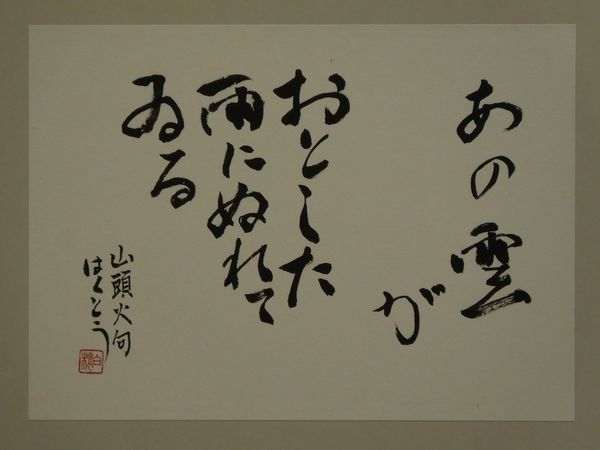 あの雲
が
おとした
雨にぬれて
ゐる
山頭火句
はくとう